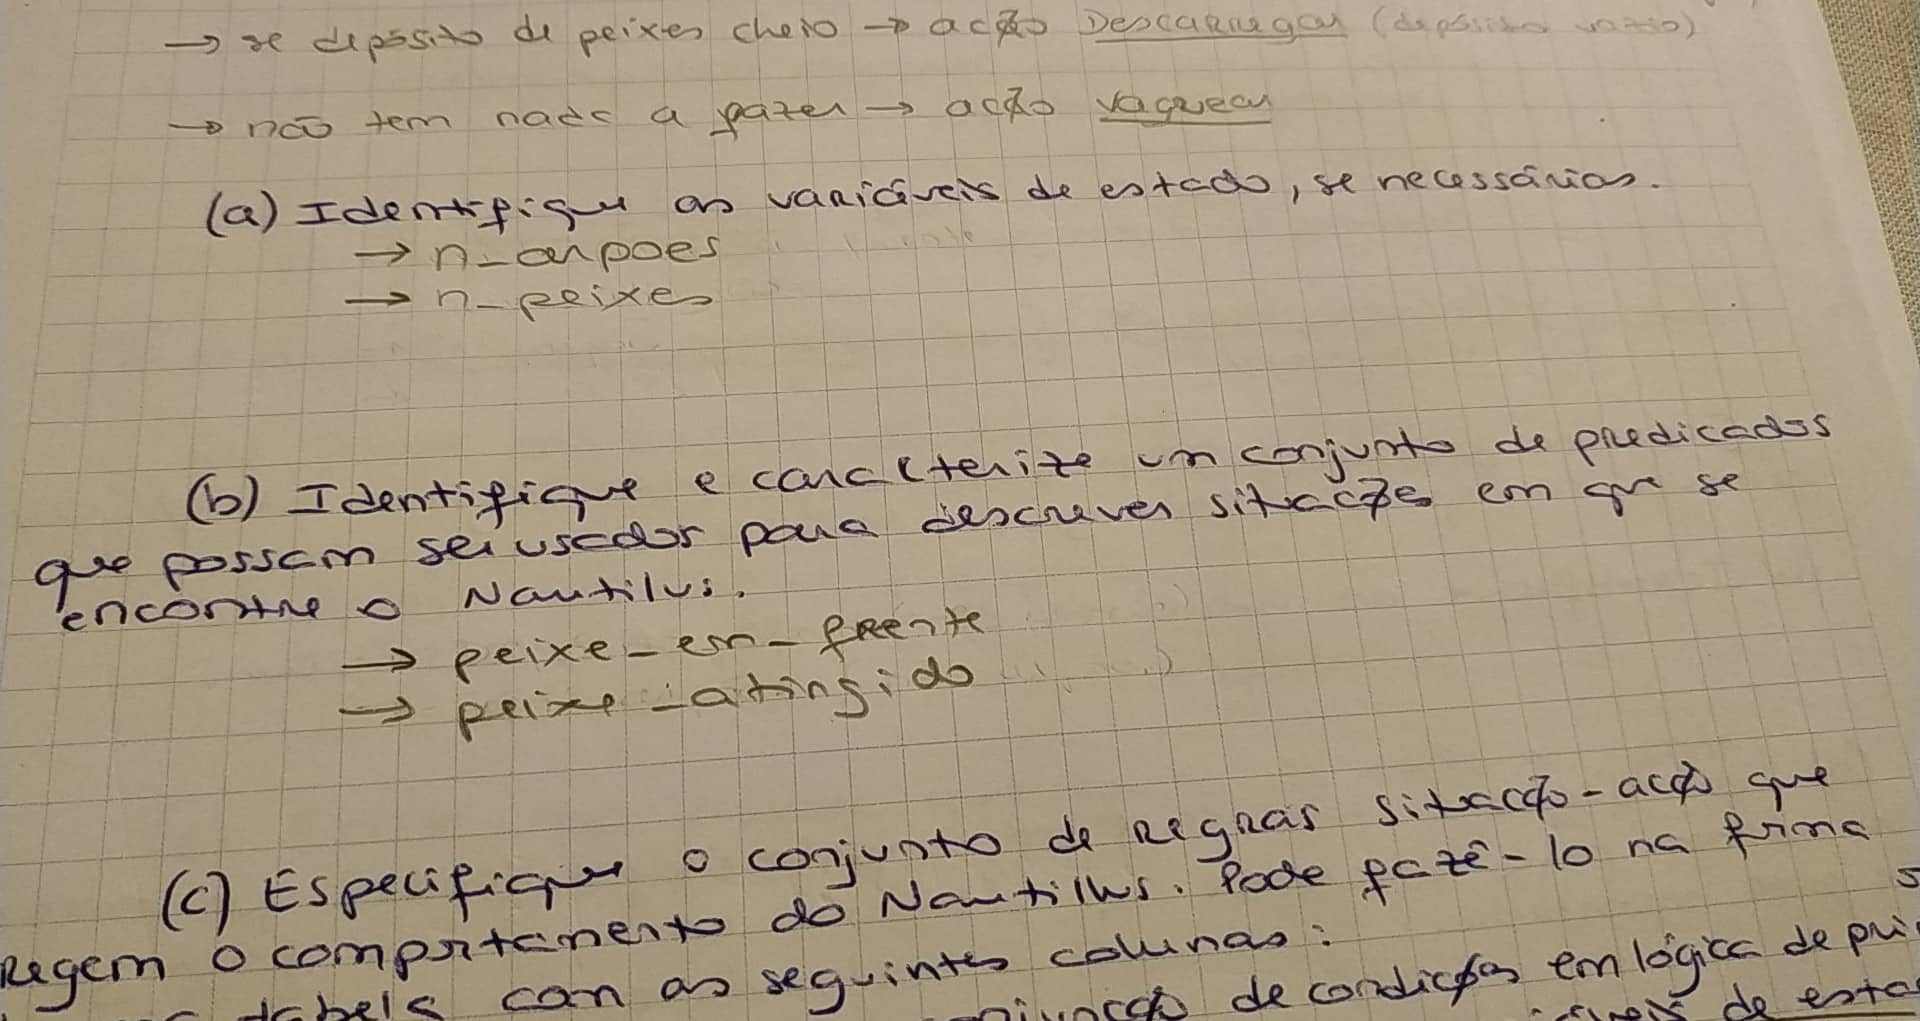 → se depósito de peixes cheio → acção Descarregar (depósito vazio)
→ não tem nada a fazer → acção vaguear
(a) Identifique as variáveis de estado, se necessárias.
→ n_arpoes
→ n_peixes
(b) Identifique e caracterize um conjunto de predicados
que possam ser usados para descrever situações em que se
encontre o Nautilus.
→ peixe_em_frente
→ peixe_atingido
(c) Especifique o conjunto de regras situação-acção que
regem o comportamento do Nautilus. Pode fazê-lo na forma
tabela com as seguintes colunas:
de condições em lógica de
de